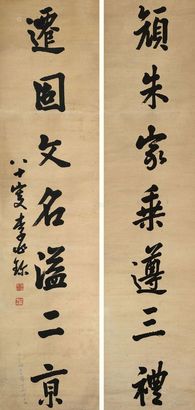 顔朱家乘遵三禮
遷固文名溢二京
八十叟李